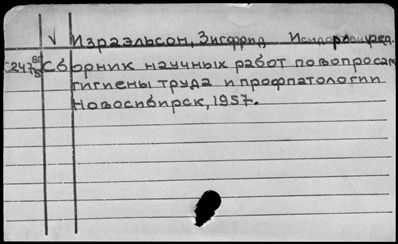 √ Израэльсон, Зигфрид Исидорович, ред.
С247 Сборник научных работ по вопросам
гигиены труда и профпатологии
Новосибирск, 1957.